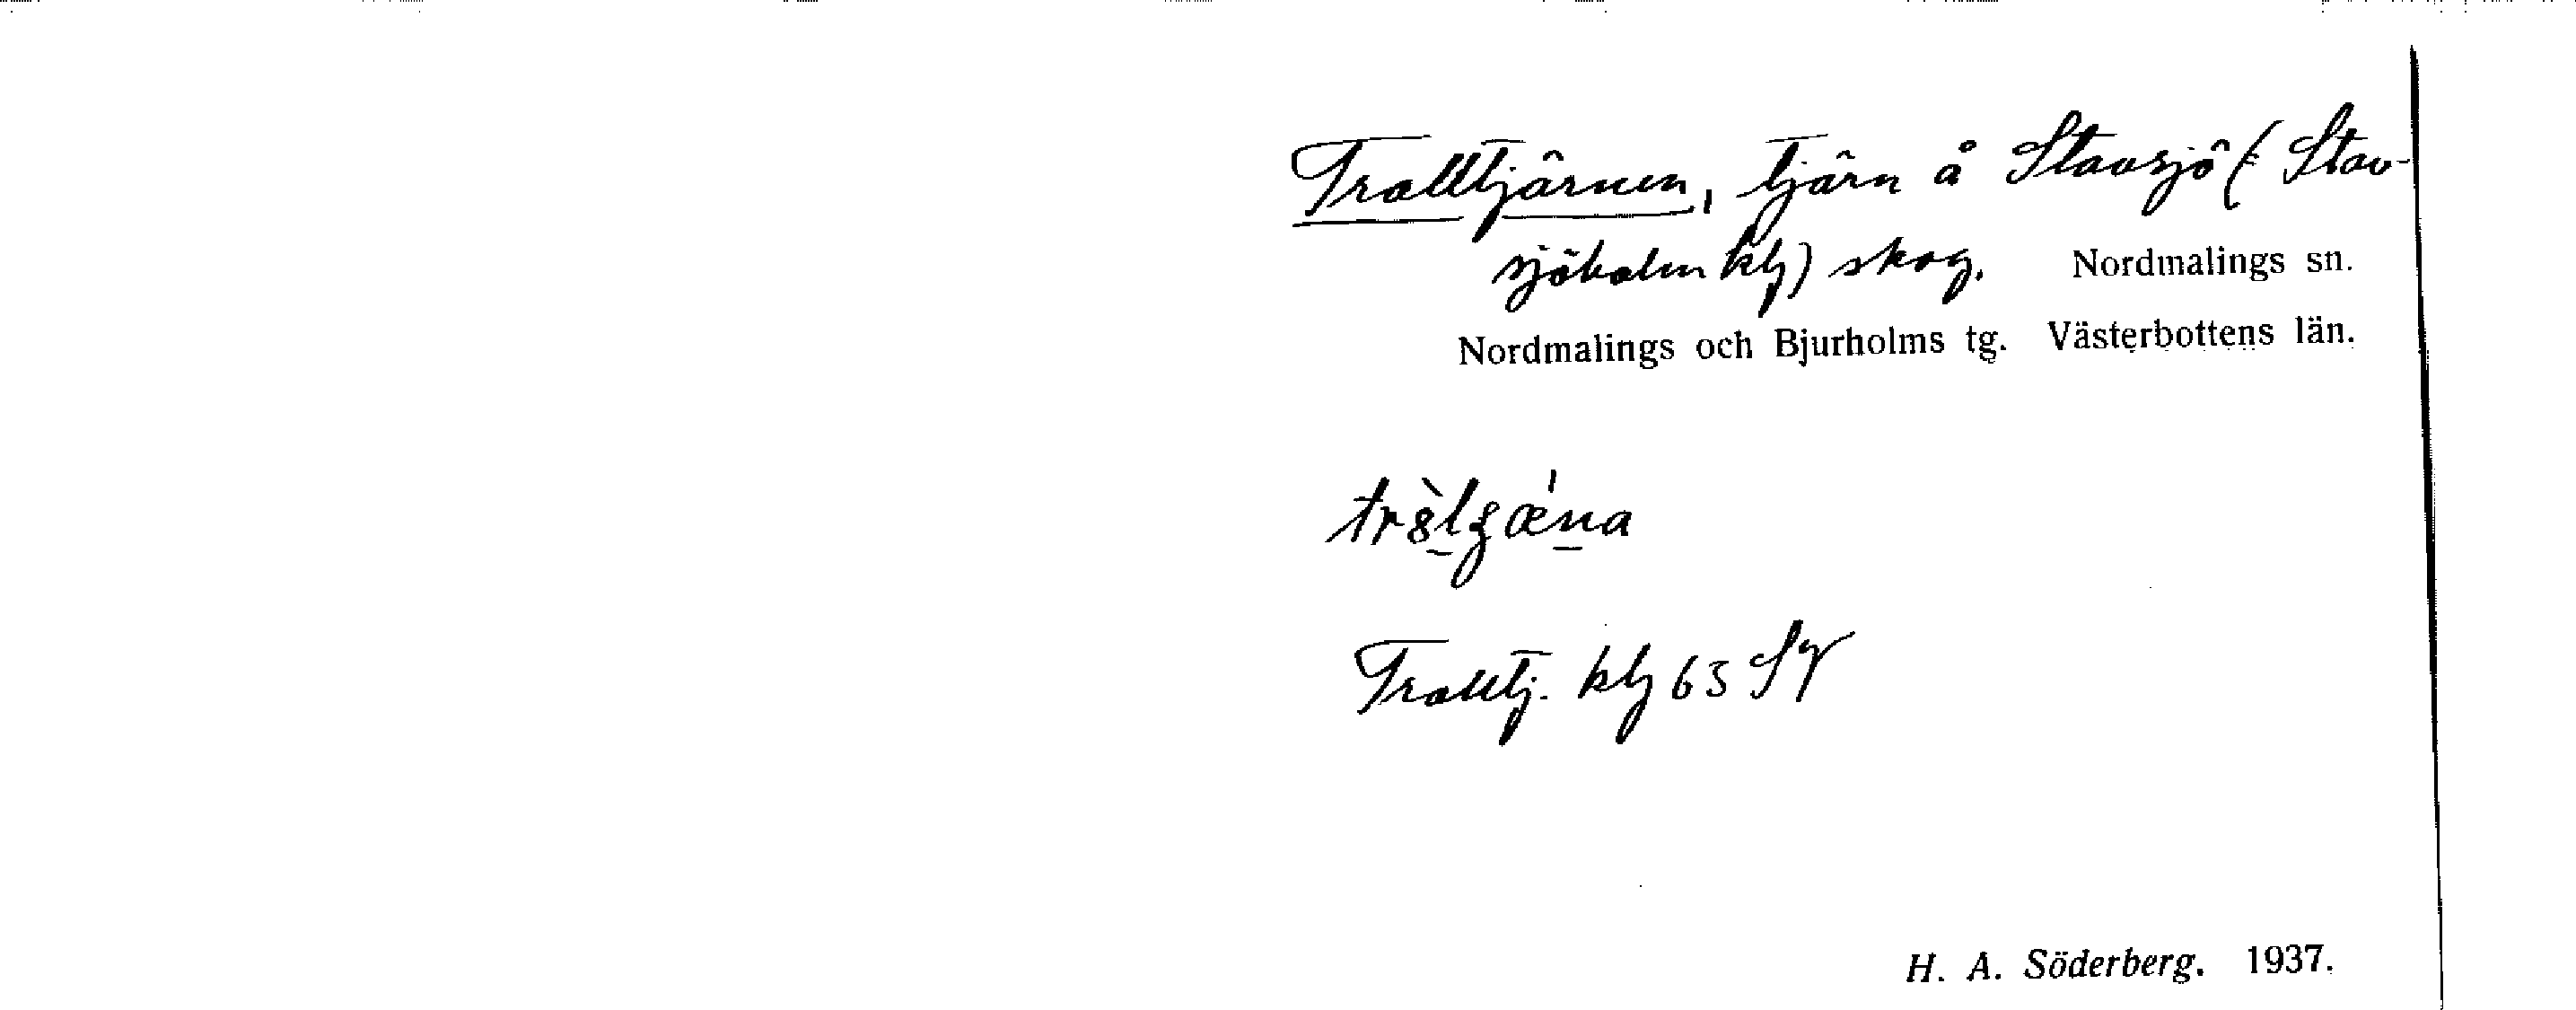 Trolltjärnen, tjärn å Stavsjö (= Stav-
sjöholm klg) skog. Nordmalings sn.
Nordmalings och Bjurholms tg. Västerbottens län.
Trolltj. klg 63 Sv
H. A. Söderberg. 1937.